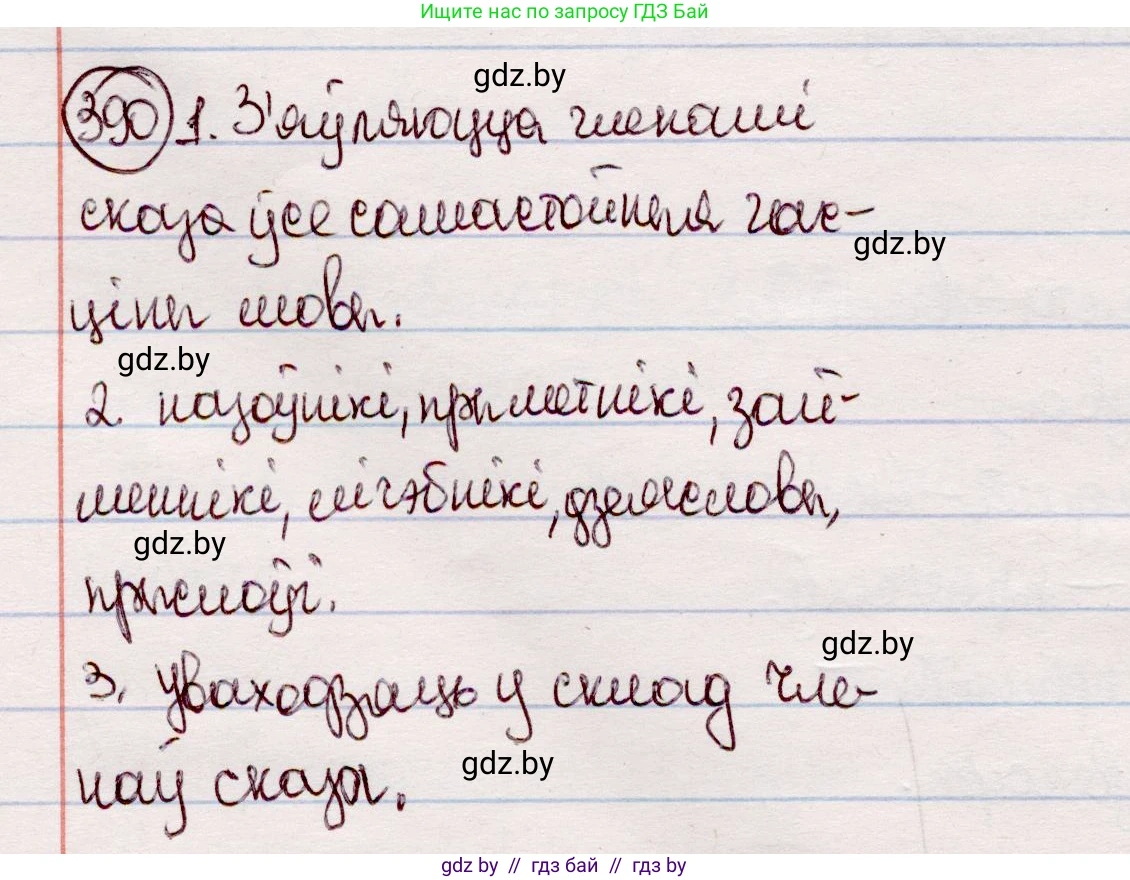 Ищите нас по запросу ГДЗ Бай
gdz.by
390 1. З'яўляюцца членамі
сказа ўсе самастойныя час-
gdz.by
ціны мовы.
gdz.by
2. назоўнікі, прыметнікі, зай-
меннікі, лічэбнікі, дзеясловы,
gdz.by
прыслоўі.
gdz.by
3. Уваходзяць у склад чле-
gdz.by
наў сказа.
gdz by // гдз бай // гдз by